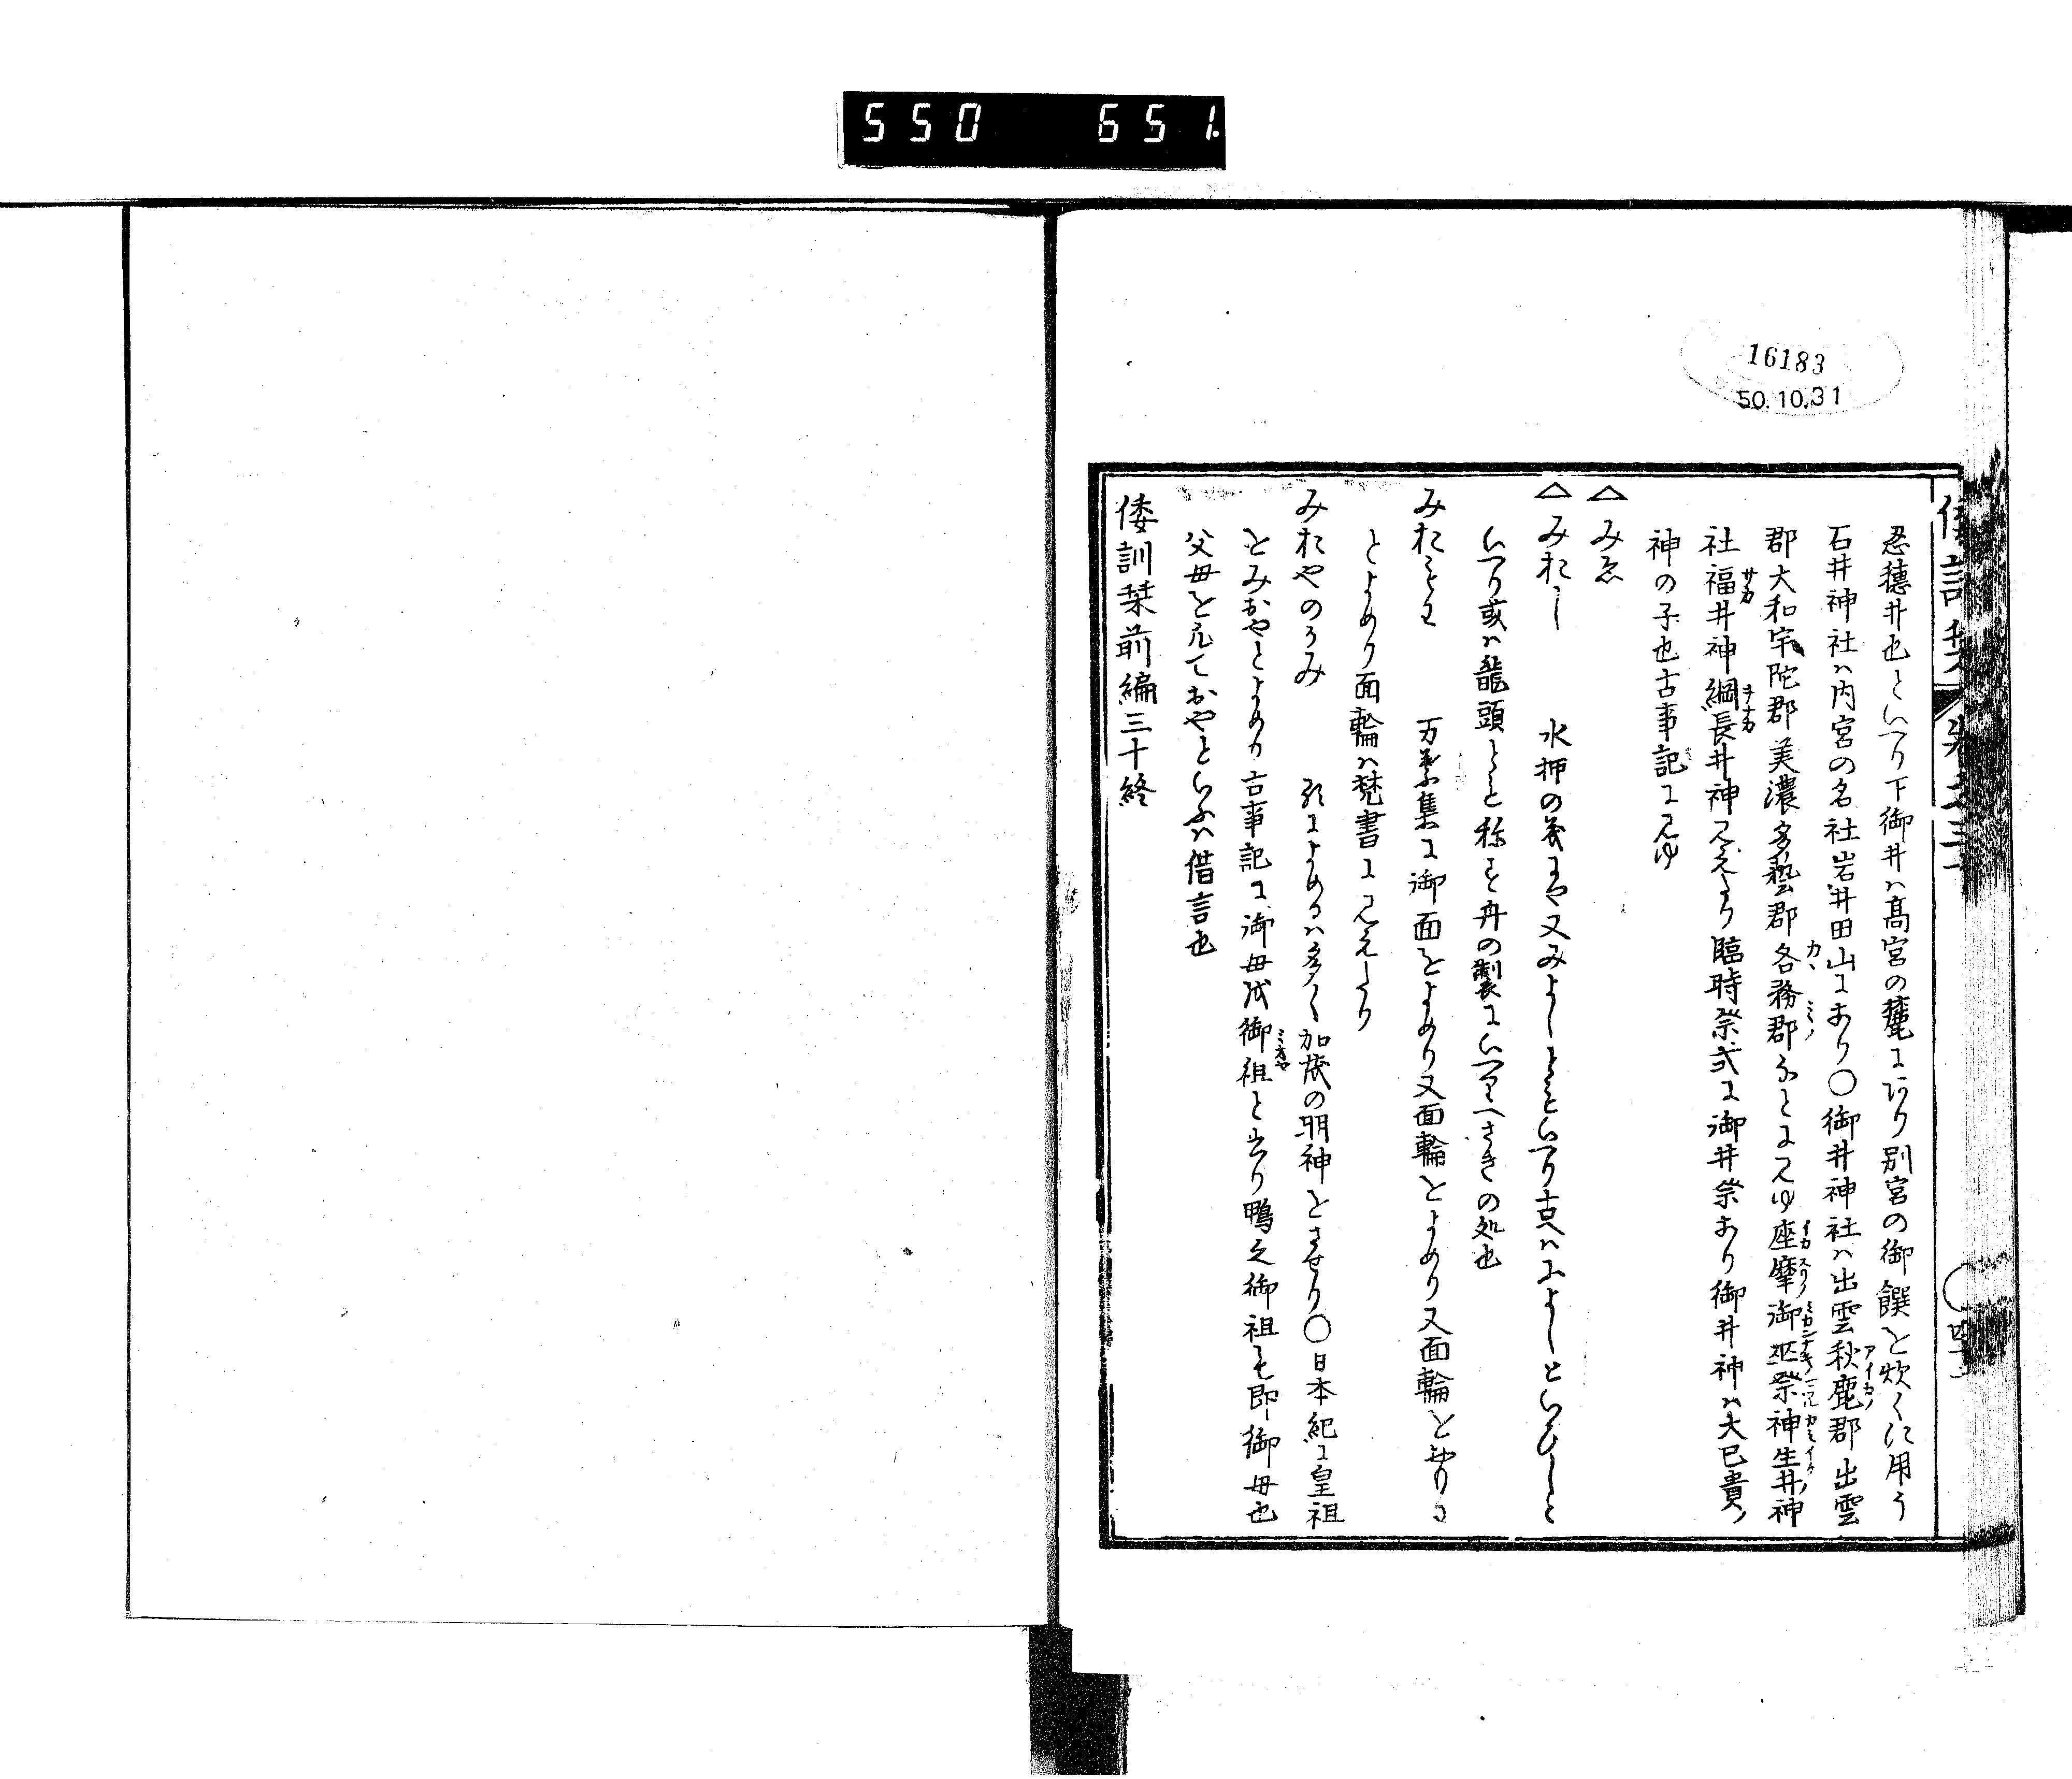 550 651.
16183
50.10.31
忍穗井也といへり下御井ハ高宮の麓にあり別宮の御饌を炊くに用う
石井神社ハ内宮の名社岩井田山にあり〇御井神社ハ出雲秋鹿郡出雲
郡大和宇陀郡美濃多藝郡各務郡なとに見ゆ座摩御巫祭神生井神
社福井神綱長井神見えたり臨時祭式に御井祭あり御井神ハ大已貴ノ
神の子也古事記に見ゆ
△みゑ
△みおし 水押の義にや又みよしともいへり古へハふよしといひしと
いへり或ハ龍頭とも称す舟の製にいへるへさきの処也
みおもわ 万葉集に御面をよめり又面輪とよめり又面輪と
とよめり面輪ハ梵書に見えたり
みおやのかみ 歌によめるハ多く加茂の明神をさせり〇日本紀に皇祖
をみおやとよめり古事記に御母我御祖と云り鴨之御祖も即御母也
父母を凡ておやといふハ借言也
倭訓栞前編三十終